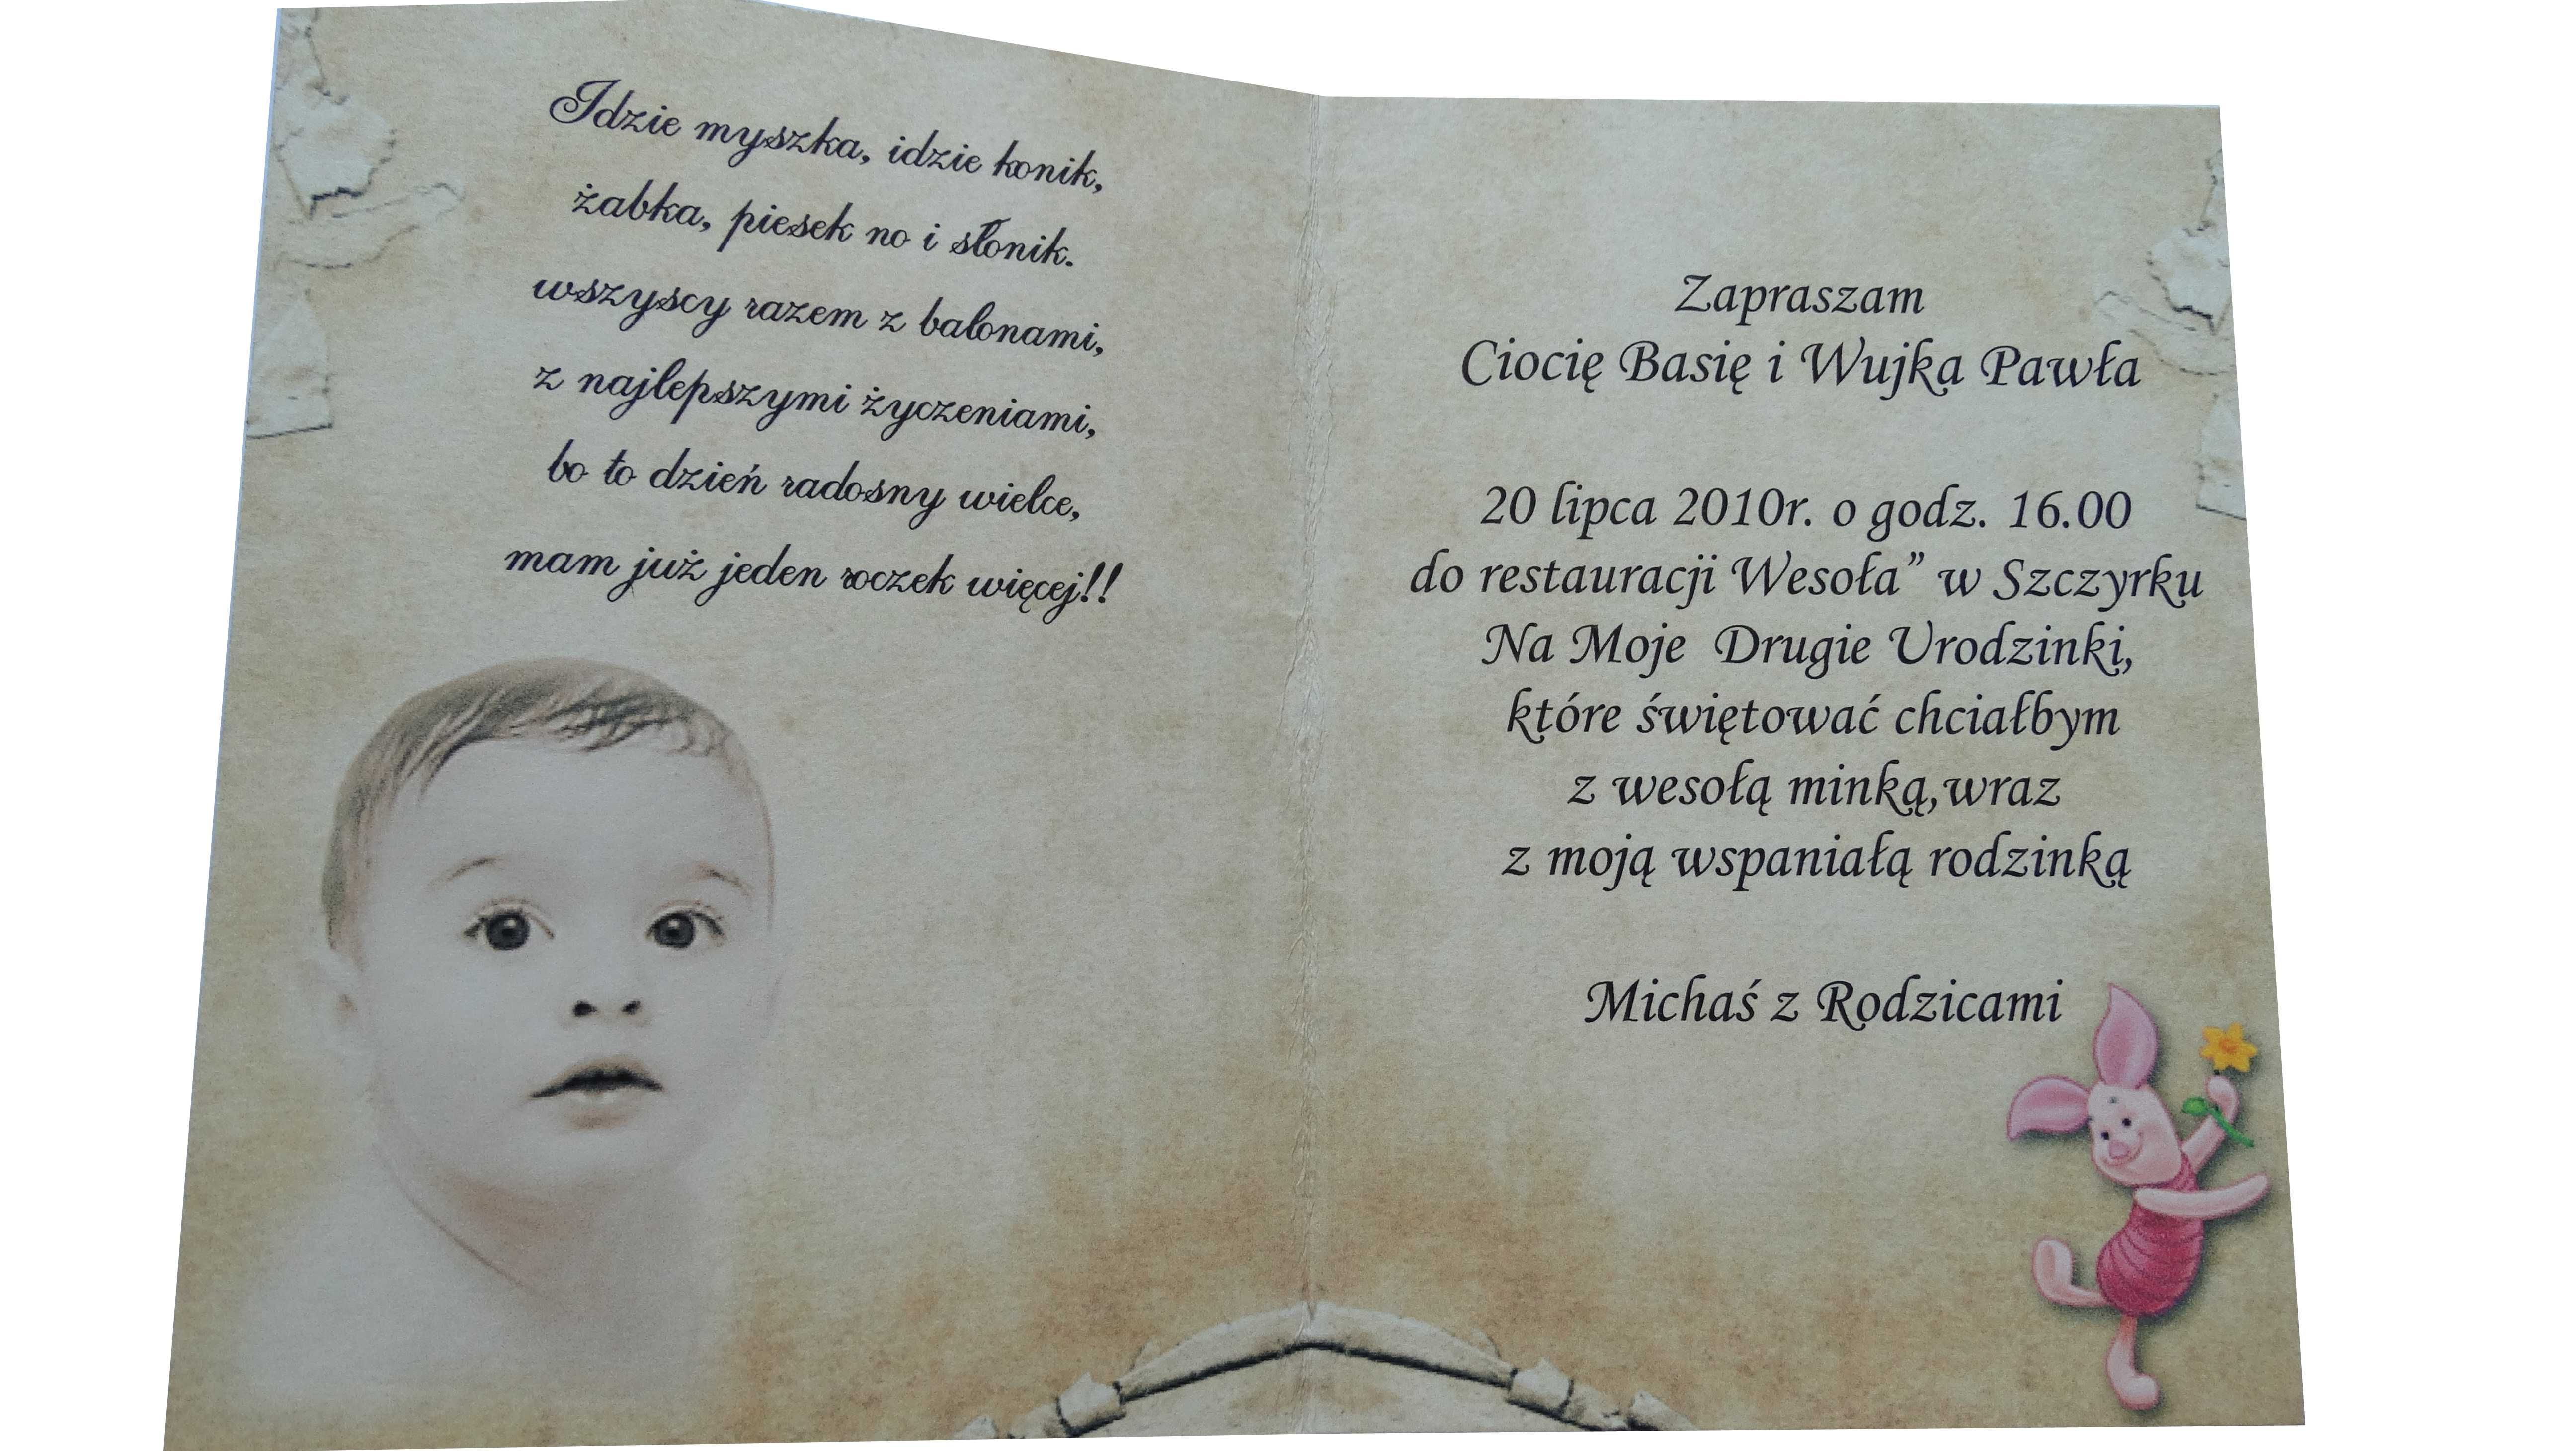 Idzie myszka, idzie konik,
żabka, piesek no i słonik.
wszyscy razem z balonami,
z najlepszymi życzeniami,
bo to dzień radosny wielce,
mam już jeden roczek więcej!!
Zapraszam
Ciocię Basię i Wujka Pawła
20 lipca 2010r. o godz. 16.00
do restauracji Wesoła” w Szczyrku
Na Moje Drugie Urodzinki,
które świętować chciałbym
z wesołą minką,wraz
z moją wspaniałą rodzinką
Michaś z Rodzicami